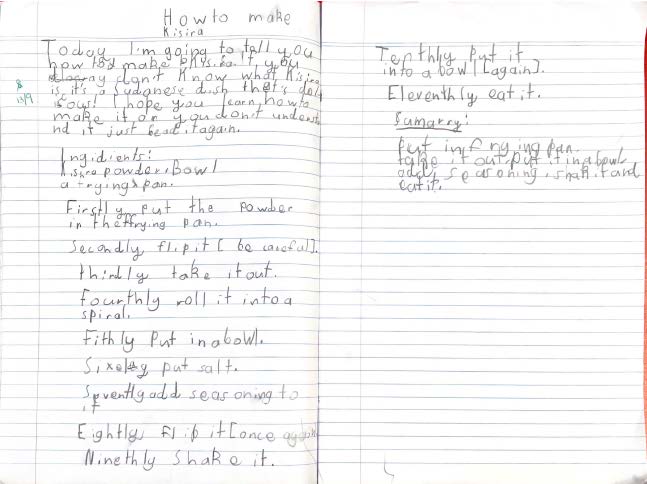 How to make
Kisira
Today I'm going to tell you
how to make Kisira. If you
don't know what Kisira
is it's a Sudanese dish that's deli
13/9
cious! I hope you learn how to
make it or you don't underst
nd it just read it again.
Ingidients:
Kisira powder, Bowl
a frying pan.
Firstly put the Powder
in the ffrying pan.
Secondly flip it [be careful].
thirdly take it out.
fourthly roll it into a
spiral.
Fithly Put in a bowl.
put salt.
Sevently add seasoning to
it
Eightly, flip it [once again
Ninethly Shake it.
Tenthly put it
into a bowl [again].
Eleventhly eat it.
Sumarry:
Put in frying pan.
take it out, put it in a bowl
add, seasoning, shake it and
eat it.